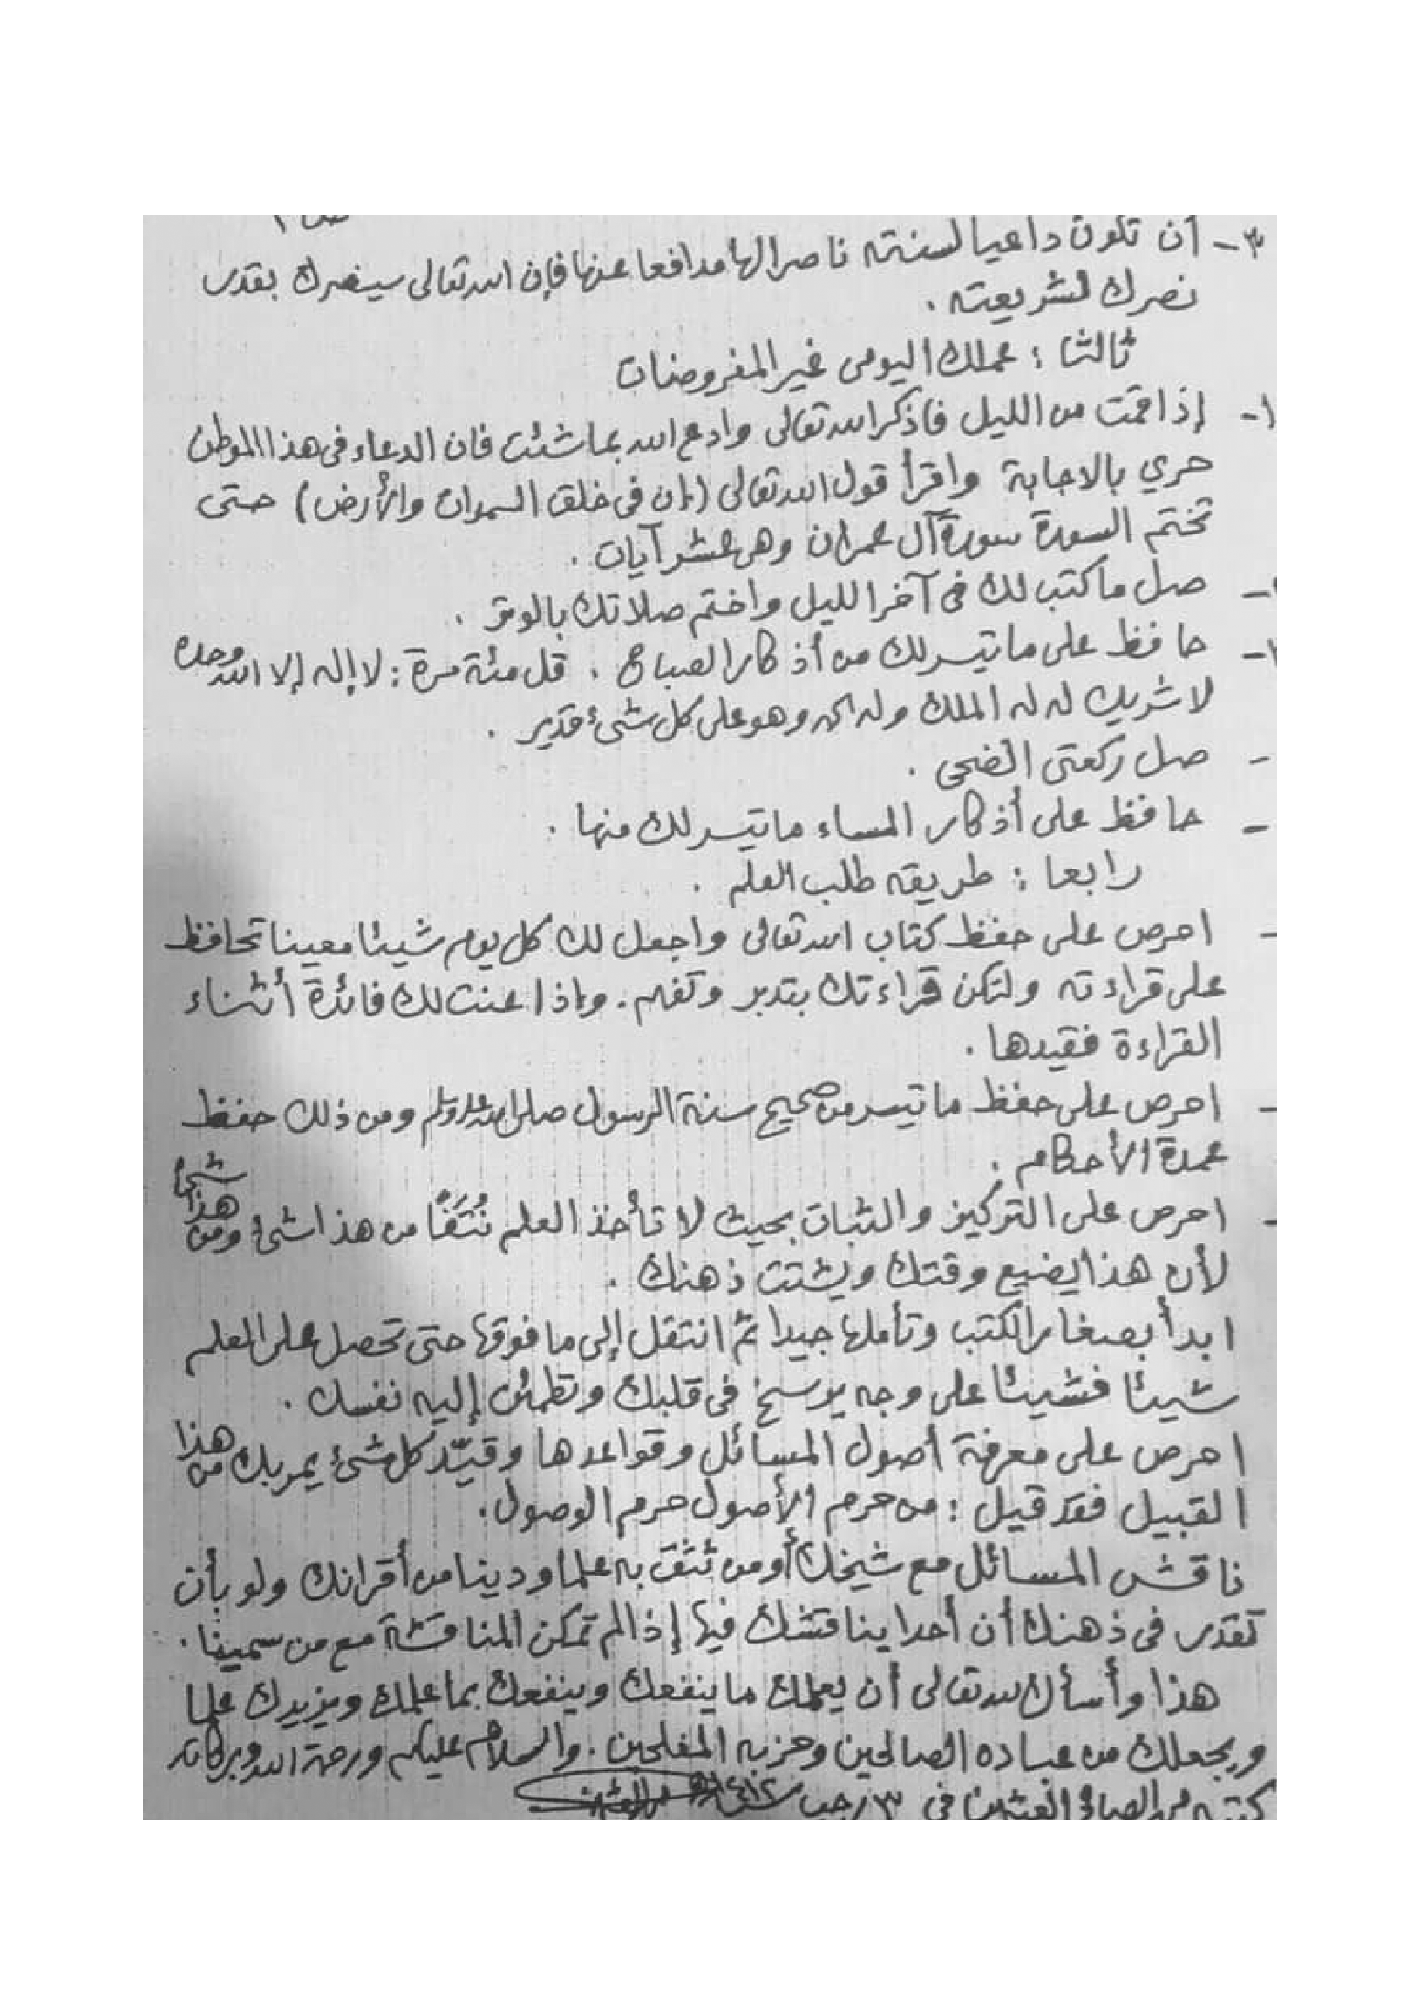 ٣- أن تكون داعيا لسنته ناصرا لها مدافعا عنها فإن الله تعالى سينصرك بقدر
نصرك لشريعته .
ثالثا : عملك اليومى غير المفروضات
١- إذا قمت من الليل فاذكر الله تعالى وادع الله بما شئت فان الدعاء فى هذا الموطن
حري بالاجابة واقرأ قول الله تعالى (إن فى خلق السموات والأرض) حتى
تختم السورة سورة آل عمران وهى عشر آيات .
- صل ما كتب لك فى آخر الليل واختم صلاتك بالوتر .
- حافظ على ما تيسر لك من أذكار الصباح . قل مئة مرة : لا إله إلا الله وحده
لا شريك له له الملك وله الحمد وهو على كل شئ قدير .
- صل ركعتى الضحى .
- حافظ على أذكار المساء ما تيسر لك منها .
رابعا : طريقه طلب العلم .
- احرص على حفظ كتاب الله تعالى واجعل لك كل يوم شيئا معينا تحافظ
على قراءته ولتكن قراءتك بتدبر وتفهم . وإذا عنت لك فائدة أثناء
القراءة فقيدها .
- احرص على حفظ ما تيسر من صحيح سنة الرسول صلى الله عليه وسلم ومن ذلك حفظ
عمدة الأحكام .
- احرص على التركيز والثبات بحيث لا تأخذ العلم نُتَفًا من هذا شئ ومن هذا شيئا
لأن هذا يضيع وقتك ويشتت ذهنك .
ابدأ بصغار الكتب وتأملها جيدا ثم انتقل إلى ما فوقها حتى تحصل على العلم
شيئا فشيئا على وجه يرسخ فى قلبك وتطمئن إليه نفسك .
احرص على معرفة أصول المسائل وقواعدها وقيّد كل شئ يمر بك من هذا
القبيل فقد قيل : من حرم الأصول حرم الوصول .
ناقش المسائل مع شيخك أو من تثق به علما ودينا من أقرانك ولو بأن
تقدر فى ذهنك أن أحدا يناقشك فيها إذا لم تمكن المناقشة مع من سمينا .
هذا وأسأل الله تعالى أن يعلمك ما ينفعك وينفعك بما علمك ويزيدك علما
ويجعلك من عباده الصالحين وحزبه المفلحين . والسلام عليكم ورحمة الله وبركاته
كتبه محمد الصالح العثيمين فى ٣ رجب